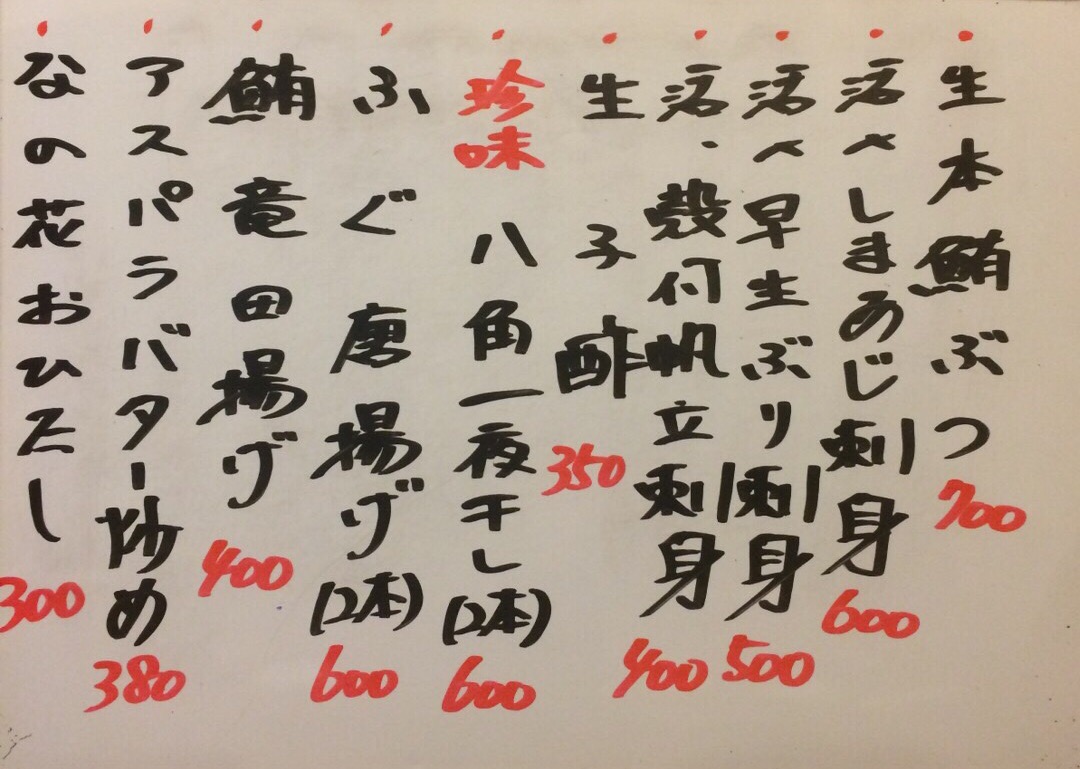 生本鮪ぶつ 700
活〆しまあじ刺身 600
活〆早生ぶり刺身 500
活・殻付帆立刺身 400
生子酢 350
珍味 八角一夜干し(2本) 600
ふぐ唐揚げ(2本) 600
鮪竜田揚げ 400
アスパラバター炒め 380
なの花おひたし 300